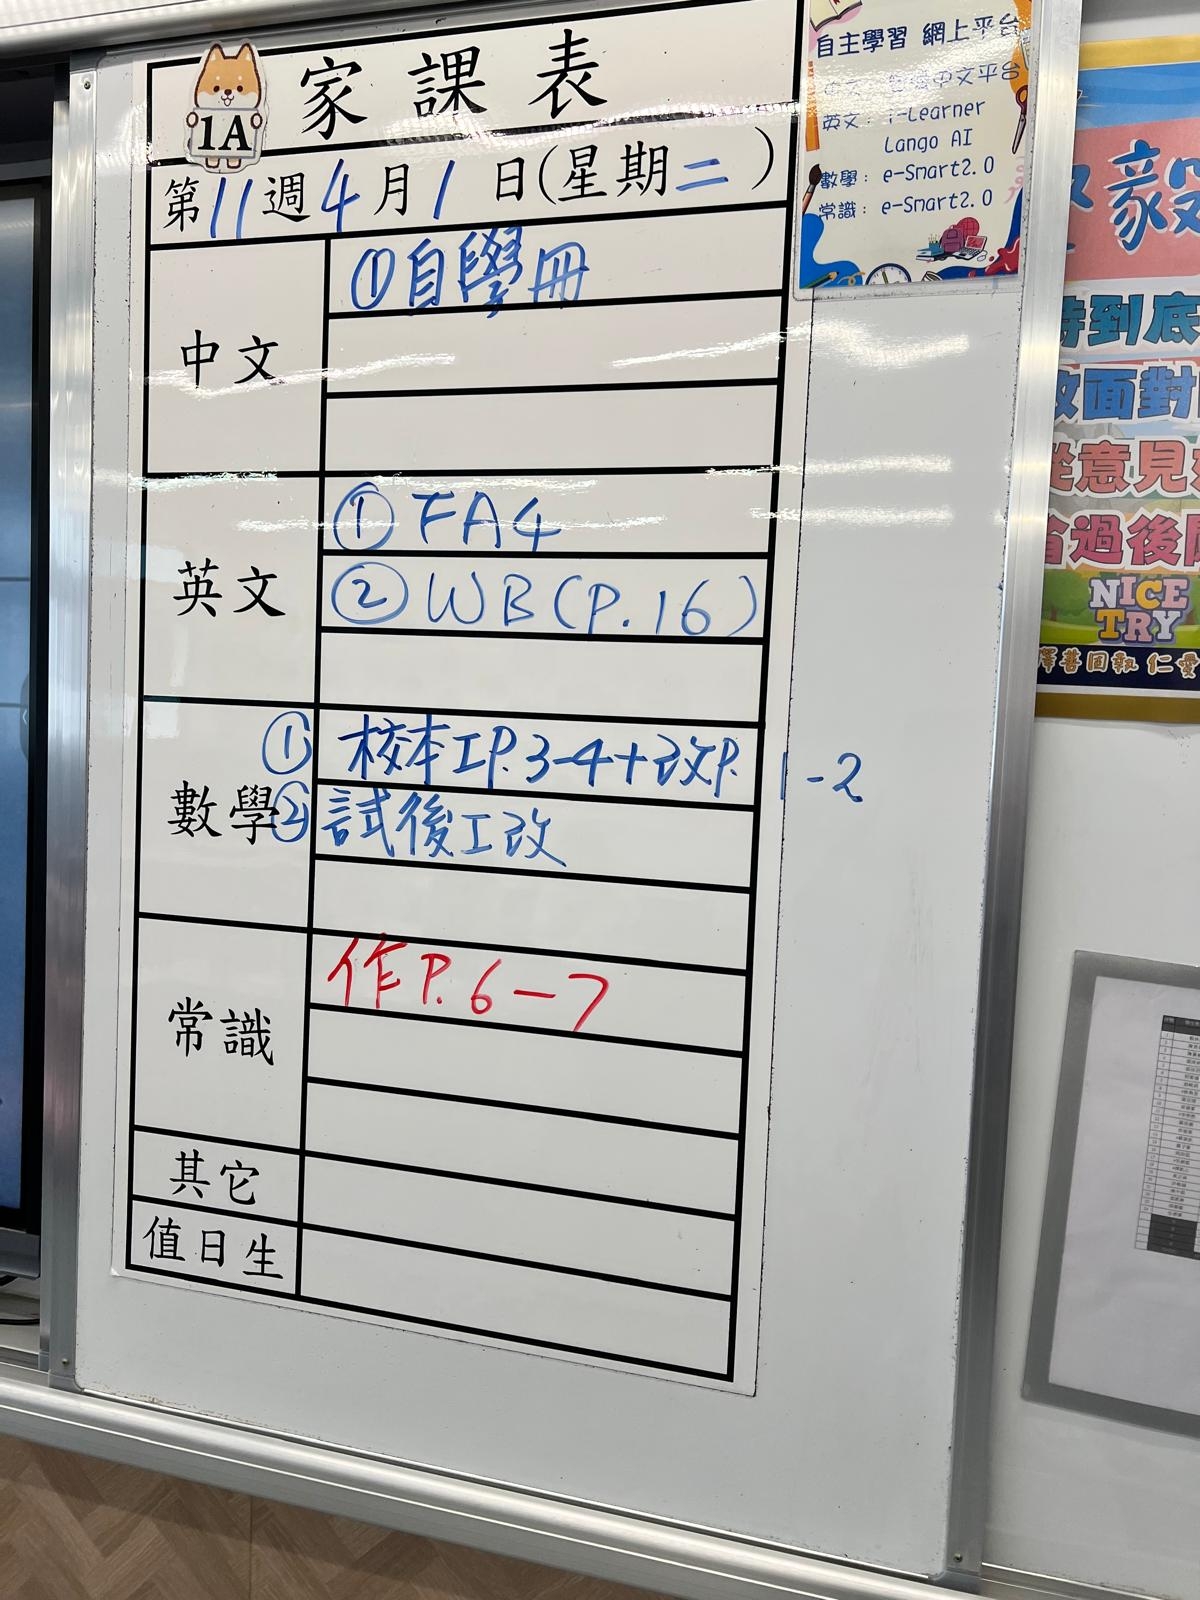 家課表
1A
第11週4月1日(星期二)
中文
①自學冊
英文
①FA4
②WB(P.16)
數學
①校本工P.3-4+改P.1-2
②試後工改
常識
作P.6-7
其它
值日生
自主學習 網上平台
中文: 中文平台
英文: i-Learner
Lango AI
數學: e-Smart2.0
常識: e-Smart2.0
毅
持到底
面對
從意見
省過後
NICE
TRY
擇善固執 仁愛